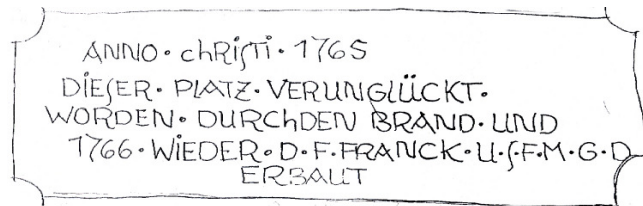 ANNO · chRiſti · 1765
DIEſER · PLATZ · VERUNGLÜCKT ·
WORDEN · DURChDEN BRAND · UND
1766 · WiEDER · D · F · FRANCK · U · ſ · F · M · G · D
ERBAUT